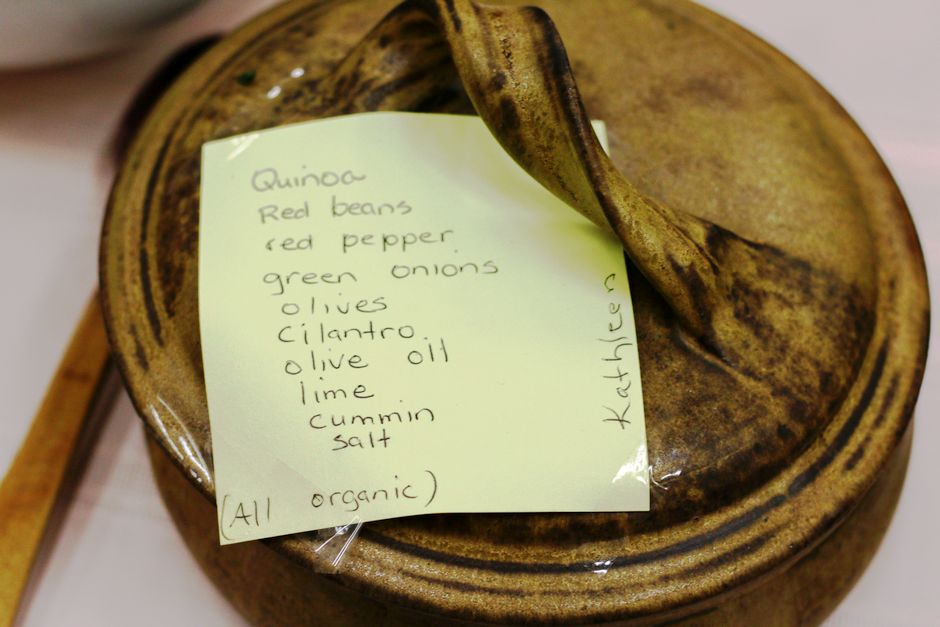 Quinoa
Red beans
red pepper
green onions
olives
cilantro
olive oil
lime
cummin
salt
(All organic)
Kathleen